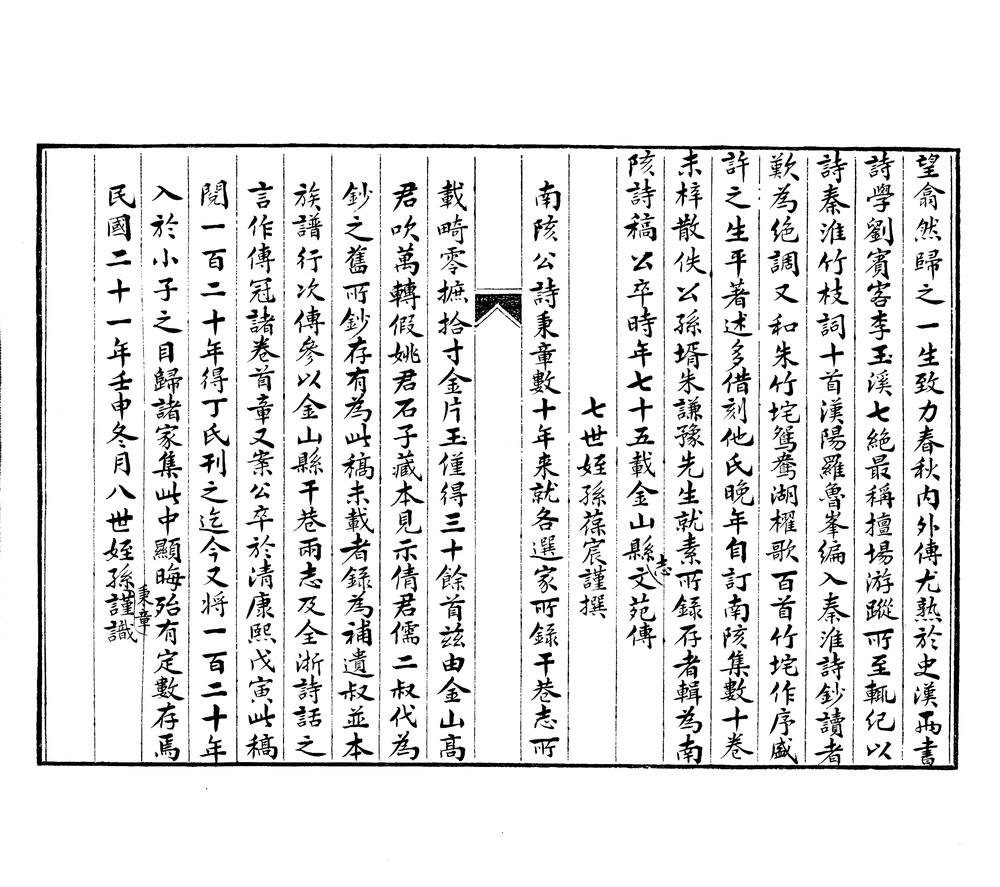 望翕然歸之一生致力春秋内外傳尤熟於史漢兩書
詩學劉賓客李玉溪七絶最稱擅場游蹤所至輒紀以
詩秦淮竹枝詞十首漢陽羅魯峯編入秦淮詩鈔讀者
歎為絶調又和朱竹垞鴛鴦湖櫂歌百首竹垞作序盛
許之生平著述多借刻他氏晚年自訂南陔集數十卷
未梓散佚公孫壻朱謙豫先生就素所錄存者輯為南
陔詩稿公卒時年七十五載金山縣志文苑傳
七世姪孫葆宸謹撰
南陔公詩秉章數十年来就各選家所錄干巷志所
載畸零摭拾寸金片玉僅得三十餘首兹由金山高
君吹萬轉假姚君石子藏本見示倩君儒二叔代為
鈔之舊所鈔存有為此稿未載者錄為補遺叔並本
族譜行次傳參以金山縣干巷兩志及全浙詩話之
言作傳冠諸卷首章又案公卒於清康熙戊寅此稿
閱一百二十年得丁氏刊之迄今又將一百二十年
入於小子之目歸諸家集此中顯晦殆有定數存焉
民國二十一年壬申冬月八世姪孫秉章謹識